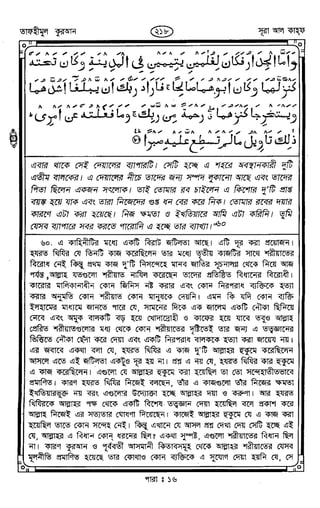 তাফহীমুল কুরআন
২১৮
সূরা আল কাহ্ফ
وَاَمَّا الْجِدَارُ فَكَانَ لِغُلٰمَيْنِ يَتِيْمَيْنِ فِى الْمَدِيْنَةِ وَكَانَ تَحْتَهٗ
كَنْزٌ لَّهُمَا وَكَانَ اَبُوْهُمَا صَالِحًا ۚ فَاَرَادَ رَبُّكَ اَنْ يَّبْلُغَا اَشُدَّهُمَا
وَيَسْتَخْرِجَا كَنْزَهُمَا رَحْمَةً مِّنْ رَّبِّكَ ۚ وَمَا فَعَلْتُهٗ عَنْ اَمْرِىْ ؕ
ذٰلِكَ تَاْوِيْلُ مَا لَمْ تَسْطِعْ عَّلَيْهِ صَبْرًا
এবার থাকে সেই দেয়ালের ব্যাপারটি। সেটি হচ্ছে এ শহরে অবস্থানকারী দু'টি
এতীম বালকের। এ দেয়ালের নীচে তাদের জন্য সম্পদ লুকানো আছে এবং তাদের
পিতা ছিলেন একজন সৎলোক। তাই তোমার রব চাইলেন এ কিশোর দু'টি প্রাপ্ত
বয়স্ক হয়ে যাক এবং তারা নিজেদের গুপ্ত ধন বের করে নিক। তোমার রবের দয়ার
কারণে এটা করা হয়েছে। নিজ ক্ষমতা ও ইখতিয়ারে আমি এটা করিনি। তুমি
যেসব ব্যাপারে সবর করতে পারোনি এ হচ্ছে তার ব্যাখ্যা।৬০
৬০. এ কাহিনীটির মধ্যে একটি বিরাট জটিলতা আছে। এটি দূর করা প্রয়োজন।
হযরত খিযির যে তিনটি কাজ করেছিলেন তার মধ্যে তৃতীয় কাজটির সাথে শরীয়াতের
বিরোধ নেই কিন্তু প্রথম কাজ দু'টি নিসন্দেহে মানব জাতির সূচনালগ্ন থেকে নিয়ে আজ
পর্যন্ত আল্লাহ যতগুলো শরীয়াত নাযিল করেছেন তাদের প্রতিষ্ঠিত বিধানের বিরোধী।
কারোর মালিকানাধীন কোন জিনিস নষ্ট করার এবং কোন নিরপরাধ ব্যক্তিকে হত্যা
করার অনুমতি কোন শরীয়াত কোন মানুষকে দেয়নি। এমন কি যদি কোন ব্যক্তি
ইলহামের মাধ্যমে জানতে পারে যে, সামনের দিকে এক জালেম একটি নৌকা ছিনিয়ে
নেবে এবং অমুক বালকটি বড় হয়ে খোদাদ্রোহী ও কাফের হয়ে যাবে তবুও আল্লাহ
প্রেরিত শরীয়াতগুলোর মধ্য থেকে কোন শরীয়াতের দৃষ্টিতেই তার জন্য এ তত্ত্বজ্ঞানের
ভিত্তিতে নৌকা ছেঁদা করে দেয়া এবং একটি নিরপরাধ বালককে হত্যা করা জায়েয নয়।
এর জবাবে একথা বলা যে, হযরত খিযির এ কাজ দু'টি আল্লাহর হুকুমে করেছিলেন
আসলে এতে এই জটিলতা একটুও দূর হয় না। প্রশ্ন এ নয় যে, হযরত খিযির কার হুকুমে
এ কাজ করেছিলেন। এগুলো যে আল্লাহর হুকুমে করা হয়েছিল তা তো সন্দেহাতীতভাবে
প্রমাণিত। কারণ হযরত খিযির নিজেই বলছেন, তাঁর এ কাজগুলো তাঁর নিজের ক্ষমতা
ইখতিয়ারভুক্ত নয় বরং এগুলোর উদ্যোক্তা হচ্ছে আল্লাহর দয়া ও করুণা। আর হযরত
খিযিরকে আল্লাহর পক্ষ থেকে একটি বিশেষ তত্ত্বজ্ঞান দেয়া হয়েছিল বলে প্রকাশ করে
আল্লাহ নিজেই এর সত্যতার ঘোষণা দিয়েছেন। কাজেই আল্লাহর হুকুমে যে এ কাজ করা
হয়েছিল তাতে কোন সন্দেহ নেই। কিন্তু এখানে যে আসল প্রশ্ন দেখা দেয় সেটি হচ্ছে এই
যে, আল্লাহর এ বিধান কোন ধরনের ছিল? একথা সুস্পষ্ট, এগুলো শরীয়াতের বিধান ছিল
না। কারণ কুরআন ও পূর্ববর্তী আসমানী কিতাবসমূহ থেকে আল্লাহর শরীয়াতের যেসব
মূলনীতি প্রমাণিত হয়েছে তার কোথাও কোন ব্যক্তিকে এ সুযোগ দেয়া হয়নি যে, সে
পারা : ১৬